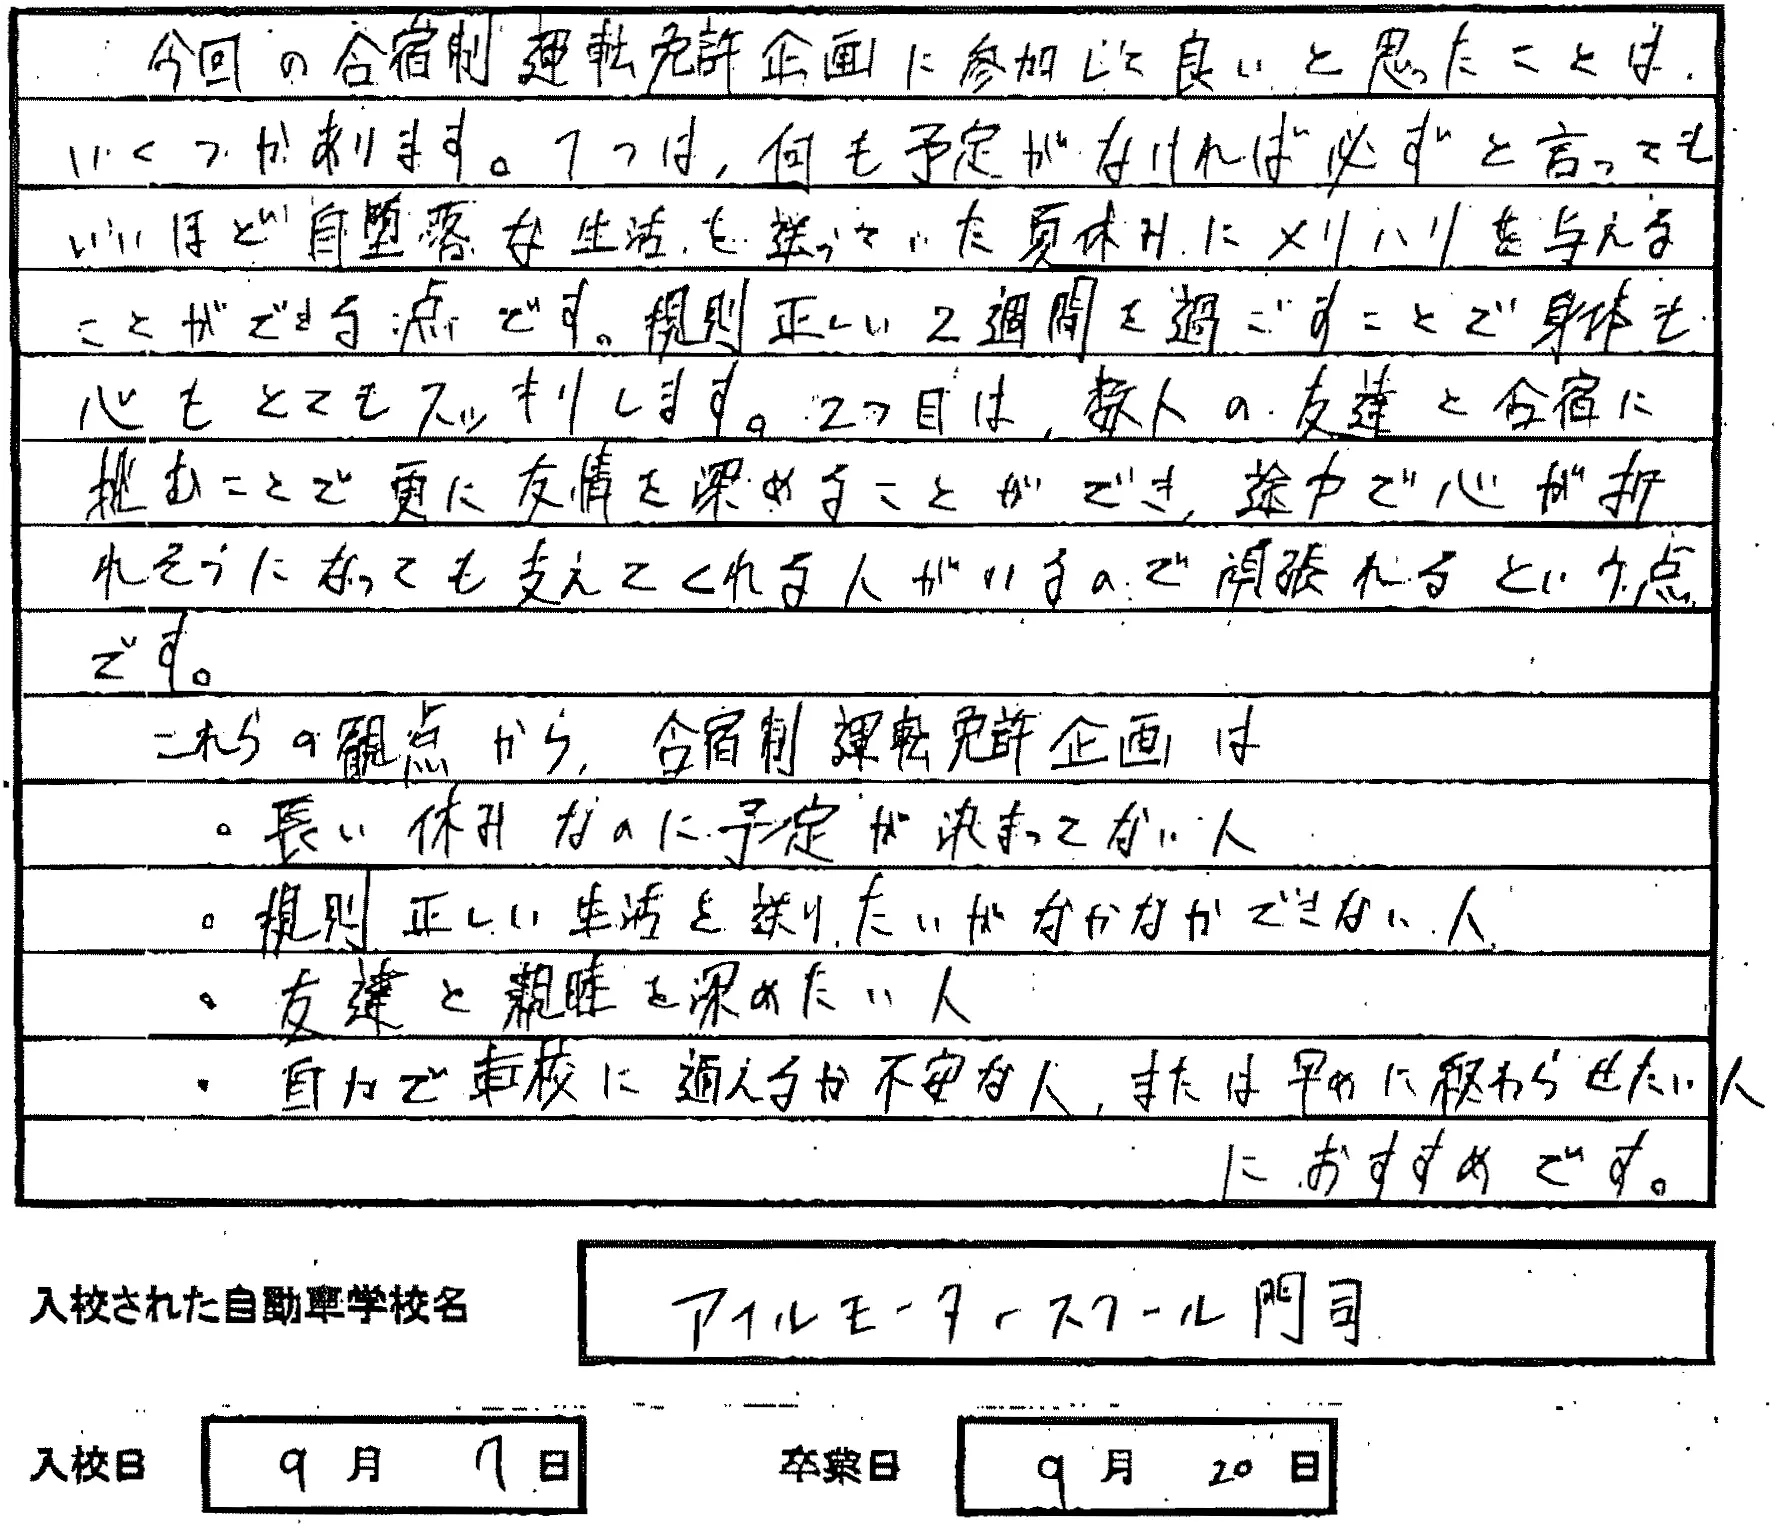 今回の合宿制運転免許企画に参加して良いと思ったことは、
いくつかあります。1つは、何も予定がなければ必ずと言っても
いいほど自堕落な生活を送っていた夏休みにメリハリを与える
ことができる点です。規則正しい2週間を過ごすことで身体も
心もとてもスッキリします。2つ目は、数人の友達と合宿に
挑むことで更に友情を深めることができ、途中で心が折
れそうになっても支えてくれる人がいるので頑張れるという点
です。
これらの観点から、合宿制運転免許企画は
。長い休みなのに予定が決まってない人
。規則正しい生活を送りたいがなかなかできない人
・友達と親睦を深めたい人
・自力で車校に通えるか不安な人、または早めに終わらせたい人
におすすめです。
入校された自動車学校名 アイルモータースクール門司
入校日 9月7日 卒業日 9月20日